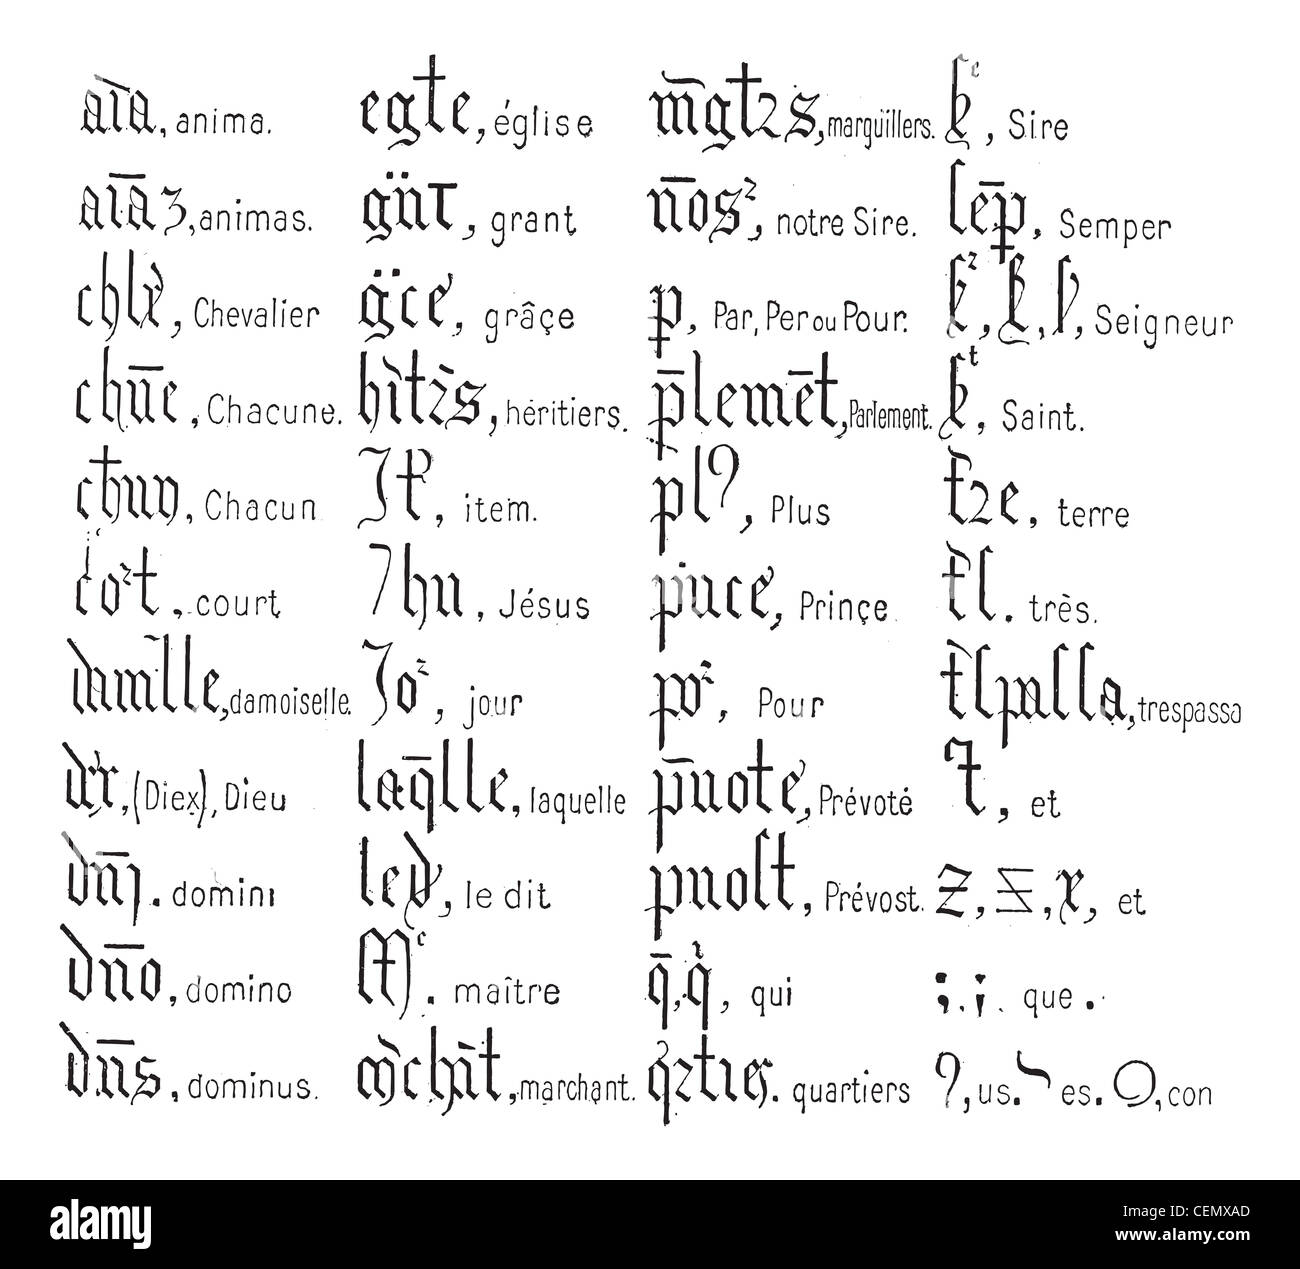 aīa, anima. egłe, église m̄gt2s, marguillers. ſc, Sire
aīa3, animas. gnt, grant n̄os2, notre Sire. ſep̄, Semper
chlr, Chevalier gce, grâçe p, Par, Per ou Pour. ſ2, ſ, ſ, Seigneur
chūe, Chacune. hit2s, héritiers. p̄lemēt, Parlement. ſt, Saint.
chun, Chacun It, item. pl9, Plus t2e, terre
co2t, court Jhu, Jésus pince, Prinçe tſ. très.
damlle, damoiselle. Jo2, jour po2, Pour tſpaſſa, trespassa
dr, (Diex), Dieu laq̄lle, laquelle p̄uote, Prévoté 7, et
dn̄j. domini led, le dit puoſt, Prévost. z, x, et
dn̄o, domino Mc. maître q̄, q, qui ;. ;. que.
dn̄s, dominus. mchāt, marchant. q2tiers. quartiers 9, us. es. con
a alamy stock photo CEMXAD
www.alamy.com